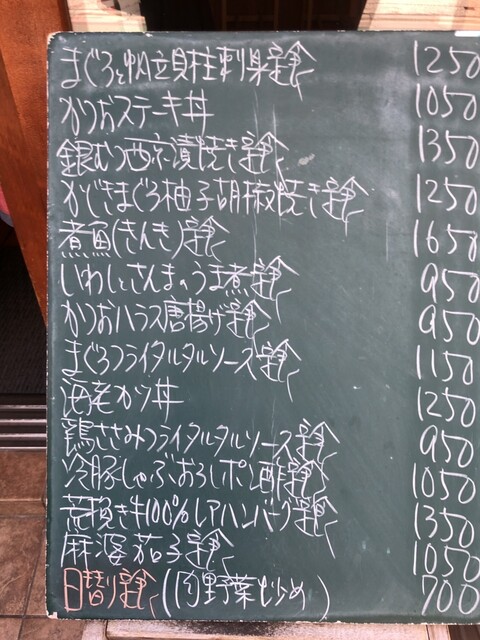 まぐろと帆立貝柱刺身定食 1250
かつおステーキ丼 1050
銀むつ西京漬焼き定食 1350
かじきまぐろ柚子胡椒焼き定食 1250
煮魚(きんき)定食 1650
いわしとさんまのうま煮定食 950
かつおハラス唐揚げ定食 950
まぐろフライタルタルソース定食 1150
海老かつ丼 1250
鶏ささみフライタルタルソース定食 950
冷豚しゃぶおろしポン酢定食 1050
荒挽き牛100%レアハンバーグ定食 1350
麻婆茄子定食 1050
日替り定食(肉野菜炒め) 700